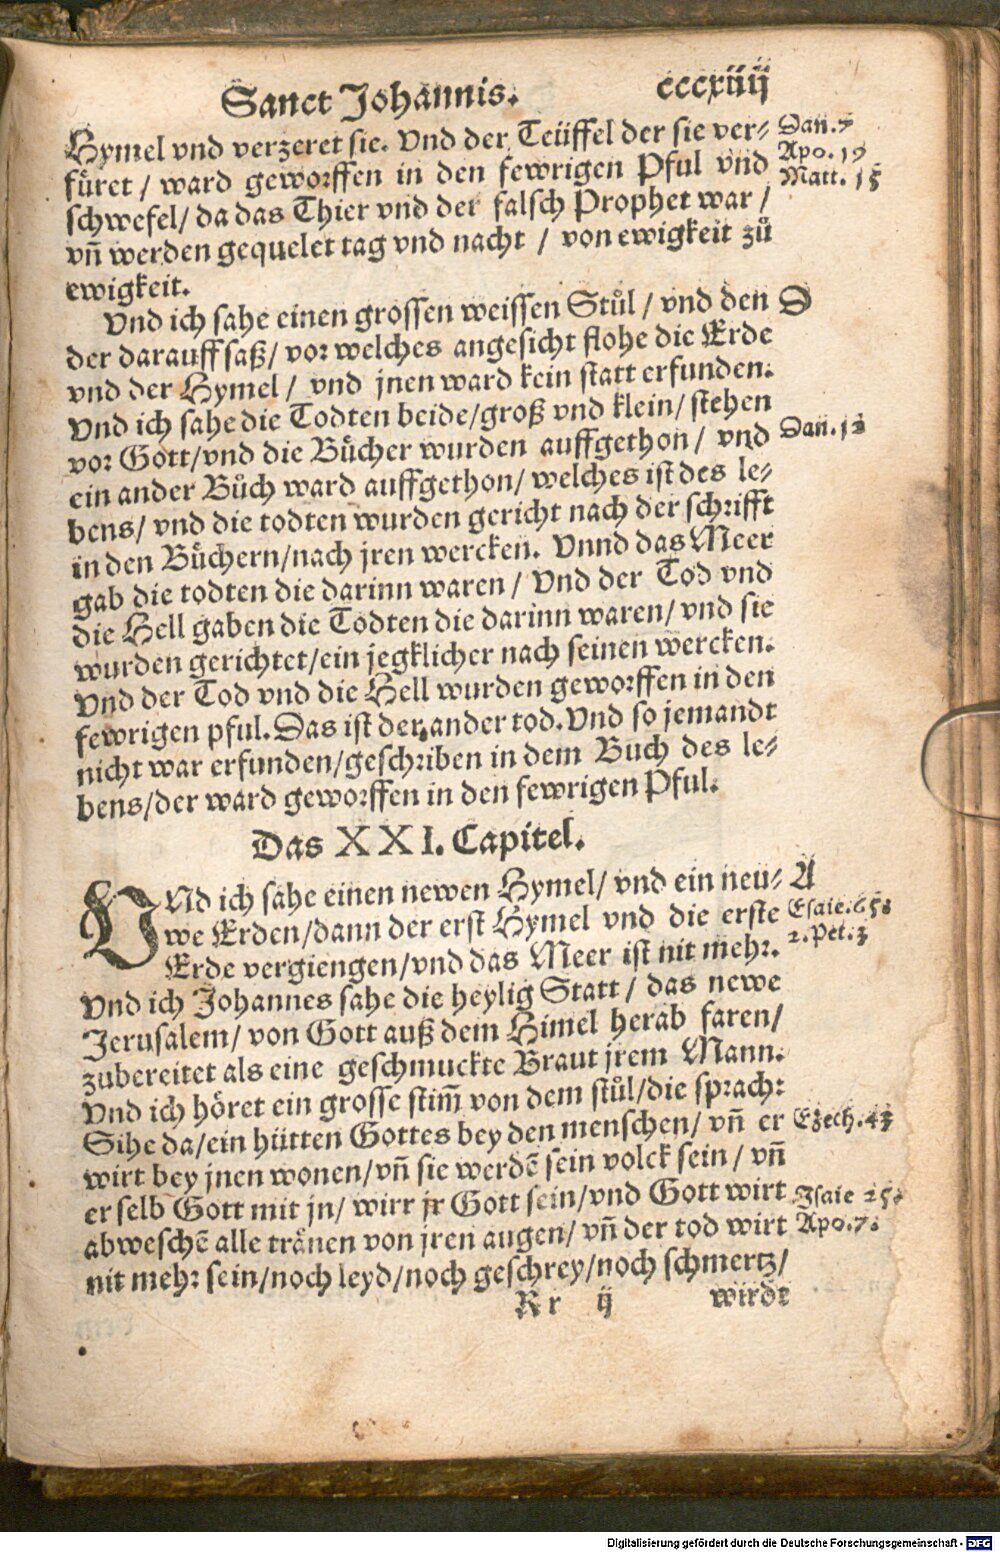 Sanct Johannis. cccxiiij
Hymel vnd verzeret sie. Vnd der Teüffel der sie ver⸗ Dan. 7
füret / ward geworffen in den fewrigen Pful vnd Apo. 19
schwefel/ da das Thier vnd der falsch Prophet war / Matt. 15
vñ werden gequelet tag vnd nacht / von ewigkeit zů
ewigkeit.
Vnd ich sahe einen grossen weissen Stůl / vnd den D
der darauff saß/ vor welches angesicht flohe die Erde
vnd der Hymel / vnd jnen ward kein statt erfunden.
Vnd ich sahe die Todten beide/groß vnd klein/ stehen
vor Gott/vnd die Bůcher wurden auffgethon/ vnd Dan. 12
ein ander Bůch ward auffgethon/ welches ist des le⸗
bens/ vnd die todten wurden gericht nach der schrifft
in den Bůchern/nach jren wercken. Vnnd das Meer
gab die todten die darinn waren / Vnd der Tod vnd
die Hell gaben die Todten die darinn waren/ vnd sie
wurden gerichtet/ein jegklicher nach seinen wercken.
Vnd der Tod vnd die Hell wurden geworffen in den
fewrigen pful. Das ist der ander tod. Vnd so jemandt
nicht war erfunden/geschriben in dem Buch des le⸗
bens/der ward geworffen in den fewrigen Pful.
Das XXI. Capitel.
VNd ich sahe einen newen Hymel/ vnd ein neu⸗ A
we Erden/dann der erst Hymel vnd die erste Esaie. 65.
Erde vergiengen/vnd das Meer ist nit mehr. 2. Pet. 3
Vnd ich Johannes sahe die heylig Statt / das newe
Jerusalem/ von Gott auß dem Himel herab faren/
zubereitet als eine geschmuckte Braut jrem Mann.
Vnd ich höret ein grosse stim̃ von dem stůl/die sprach:
Sihe da/ein hütten Gottes bey den menschen/ vñ er Ezech. 43
wirt bey jnen wonen/vñ sie werdẽ sein volck sein / vñ
er selb Gott mit jn/ wirr jr Gott sein/vnd Gott wirt Isaie 25.
abweschẽ alle tränen von jren augen/ vñ der tod wirt Apo. 7.
nit mehr sein/noch leyd/noch geschrey/noch schmertz/
Rr ij wirdt
Digitalisierung gefördert durch die Deutsche Forschungsgemeinschaft - DFG